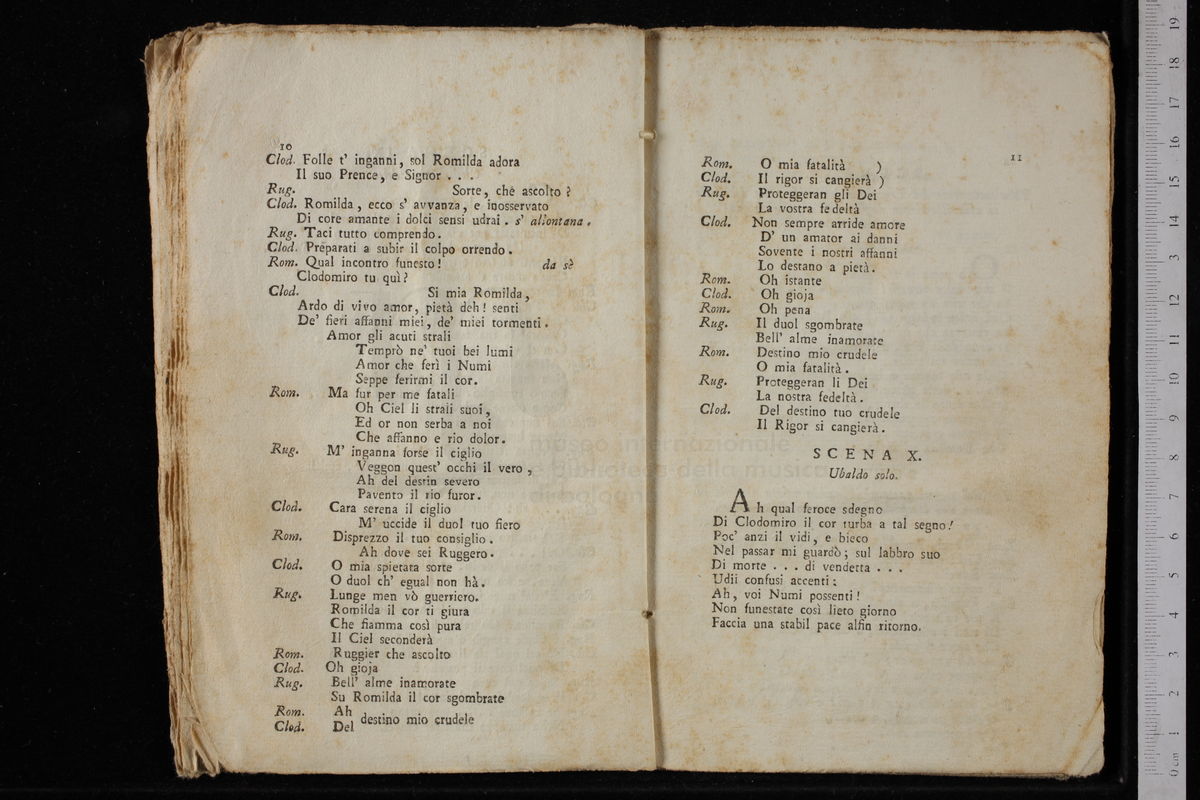 10
Clod. Folle t' inganni, sol Romilda adora
Il suo Prence, e Signor . . .
Rug. Sorte, che ascolto ?
Clod. Romilda, ecco s' avvanza, e inosservato
Di core amante i dolci sensi udrai. s' allontana.
Rug. Taci tutto comprendo.
Clod. Preparati a subir il colpo orrendo.
Rom. Qual incontro funesto! da sè
Clodomiro tu quì?
Clod. Si mia Romilda,
Ardo di vivo amor, pietà deh! senti
De' fieri affanni miei, de' miei tormenti.
Amor gli acuti strali
Temprò ne' tuoi bei lumi
Amor che ferì i Numi
Seppe ferirmi il cor.
Rom. Ma fur per me fatali
Oh Ciel li strali suoi,
Ed or non serba a noi
Che affanno e rio dolor.
Rug. M' inganna forse il ciglio
Veggon quest' occhi il vero,
Ah del destin severo
Pavento il rio furor.
Clod. Cara serena il ciglio
M' uccide il duol tuo fiero
Rom. Disprezzo il tuo consiglio.
Ah dove sei Ruggero.
Clod. O mia spietata sorte
O duol ch' egual non hà.
Rug. Lunge men vò guerriero.
Romilda il cor ti giura
Che fiamma così pura
Il Ciel seconderà
Rom. Ruggier che ascolto
Clod. Oh gioja
Rug. Bell' alme inamorate
Su Romilda il cor sgombrate
Rom. Ah destino mio crudele
Clod. Del
11
Rom. O mia fatalità )
Clod. Il rigor si cangierà )
Rug. Proteggeran gli Dei
La vostra fedeltà
Clod. Non sempre arride amore
D' un amator ai danni
Sovente i nostri affanni
Lo destano a pietà.
Rom. Oh istante
Clod. Oh gioja
Rom. Oh pena
Rug. Il duol sgombrate
Bell' alme inamorate
Rom. Destino mio crudele
O mia fatalità.
Rug. Proteggeran li Dei
La nostra fedeltà.
Clod. Del destino tuo crudele
Il Rigor si cangierà.
SCENA X.
Ubaldo solo.
Ah qual feroce sdegno
Di Clodomiro il cor turba a tal segno!
Poc' anzi il vidi, e bieco
Nel passar mi guardò; sul labbro suo
Di morte . . . di vendetta . . .
Udii confusi accenti:
Ah, voi Numi possenti!
Non funestate così lieto giorno
Faccia una stabil pace alfin ritorno.
museo internazionale
e biblioteca della musica
di bologna
0 cm 1 2 3 4 5 6 7 8 9 10 11 12 13 14 15 16 17 18 19